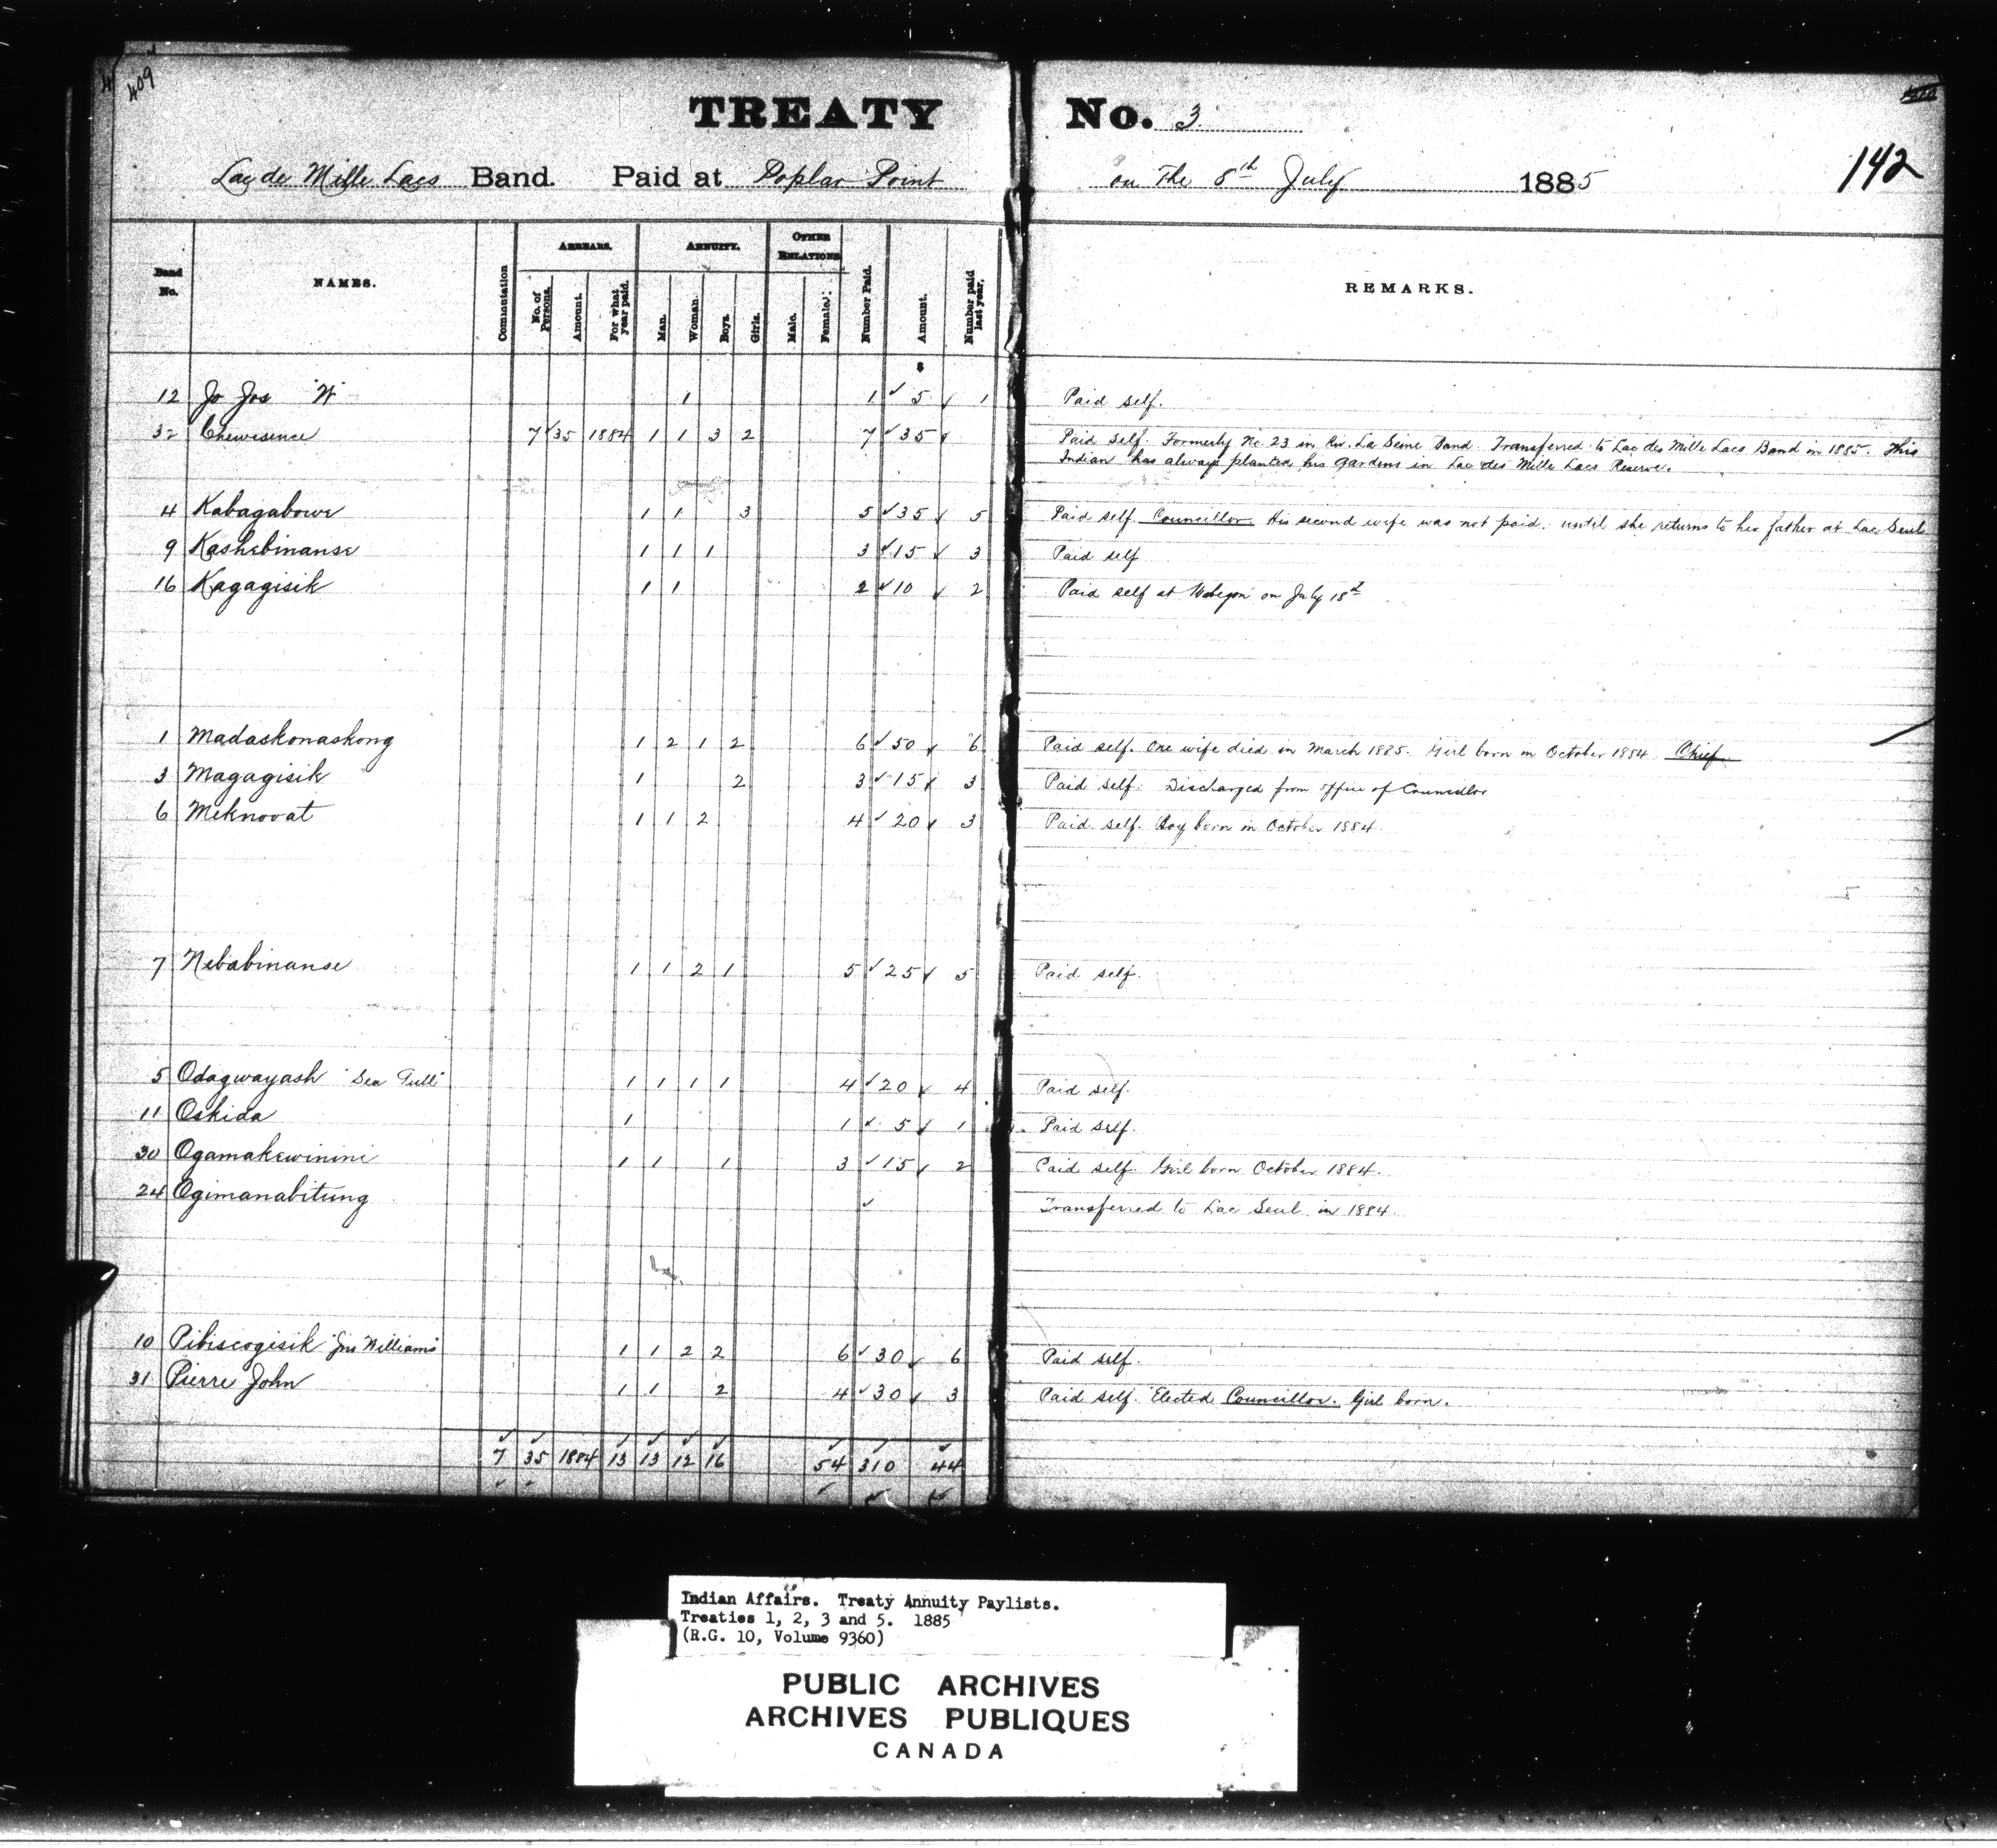 409
TREATY No. 3
142
Lac des Mille Lacs Band. Paid at Poplar Point on the 8th July 1885
Band No. NAMES. Commutation ARREARS. No. of Persons. Amount. For what year paid. ANNUITY. Man. Woman. Boys. Girls. OTHER RELATIONS Male. Female. Number Paid. Amount. Number paid last year. REMARKS.
$
12 Jo Jos "W" 1 1 ✓ 5 ✓ 1 Paid self.
32 Chewisence 7 ✓ 35 1884 1 1 3 2 7 ✓ 35 ✓ Paid self. Formerly No. 23 in Riv. La Seine Band. Transferred to Lac des Mille Lacs Band in 1885. This
Indian has always planted his gardens in Lac des Mille Lacs Reserve.
4 Kabagabowe 1 1 3 5 ✓ 35 ✓ 5 Paid self Councillor His second wife was not paid. until she returns to her father at Lac Seul
9 Kashebinanse 1 1 1 3 ✓ 15 ✓ 3 Paid self
16 Kagagisik 1 1 2 ✓ 10 ✓ 2 Paid self at on July 18th
1 Madaskonaskong 1 2 1 2 6 ✓ 50 ✓ 6 Paid self. One wife died in March 1885. Girl born in October 1884. Chief
3 Magagisik 1 2 3 ✓ 15 ✓ 3 Paid self. Discharged from office of Councillor
6 Meknovat 1 1 2 4 ✓ 20 ✓ 3 Paid self. Boy born in October 1884.
7 Nebabinanse 1 1 2 1 5 ✓ 25 ✓ 5 Paid self.
5 Odagwayash "Sea Tull" 1 1 1 1 4 ✓ 20 ✓ 4 Paid self.
11 Oskida 1 1 ✓ 5 ✓ 1 Paid self.
30 Ogamakewinini 1 1 1 3 ✓ 15 ✓ 2 Paid self. Girl born October 1884.
24 Ogimanabitung ✓ Transferred to Lac Seul in 1884.
10 Pibiscogisik "Jno Williams" 1 1 2 2 6 ✓ 30 ✓ 6 Paid self.
31 Pierre John 1 1 2 4 ✓ 30 ✓ 3 Paid self. Elected Councillor. Girl born.
7 35 1884 13 13 12 16 54 310 44
Indian Affairs. Treaty Annuity Paylists.
Treaties 1, 2, 3 and 5. 1885
(R.G. 10, Volume 9360)
PUBLIC ARCHIVES
ARCHIVES PUBLIQUES
CANADA